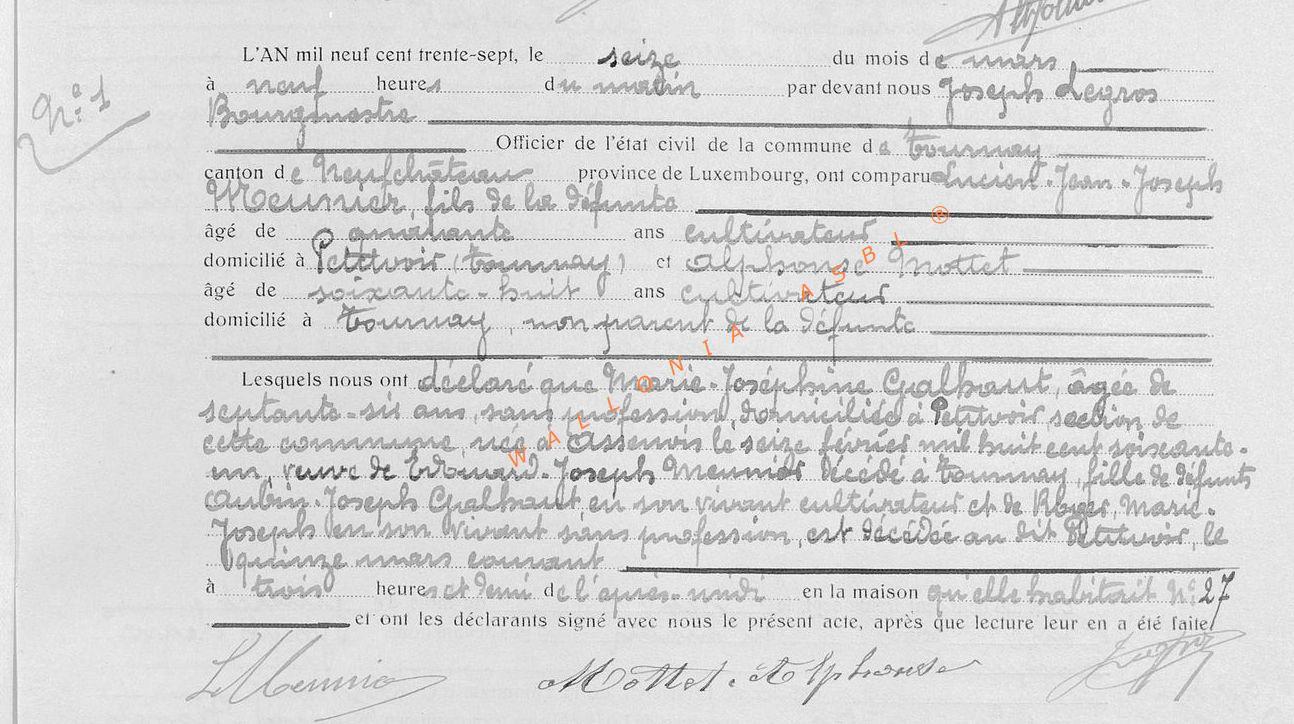 L'AN mil neuf cent trente-sept, le seize du mois de mars
N° 1
à neuf heures du matin par devant nous Joseph Legros
Bourgmestre
Officier de l'état civil de la commune de Tournay
canton de Neufchâteau province de Luxembourg, ont comparu Lucien-Jean-Joseph
Meunier, fils de la défunte
âgé de quarante ans cultivateur
domicilié à Petitvoir (Tournay) et Alphonse Mottet
âgé de soixante-huit ans cultivateur
domicilié à Tournay, non parent de la défunte
WALLONIA ASBL ®
Lesquels nous ont déclaré que Marie-Joséphine Galhaut, âgée de
septante-six ans, sans profession, domiciliée à Petitvoir, section de
cette commune, née à Assenois le seize février mil huit cent soixante-
un, veuve de Edouard-Joseph Meunier décédé à Tournay, fille de défunts
Aubin-Joseph Galhaut en son vivant cultivateur et de Roger, Marie-
Joseph en son vivant sans profession, est décédée au dit Petitvoir, le
quinze mars courant
à trois heures et demi de l'après-midi en la maison qu'elle habitait N° 27
et ont les déclarants signé avec nous le présent acte, après que lecture leur en a été faite
L Meunier Mottet. Alphonse